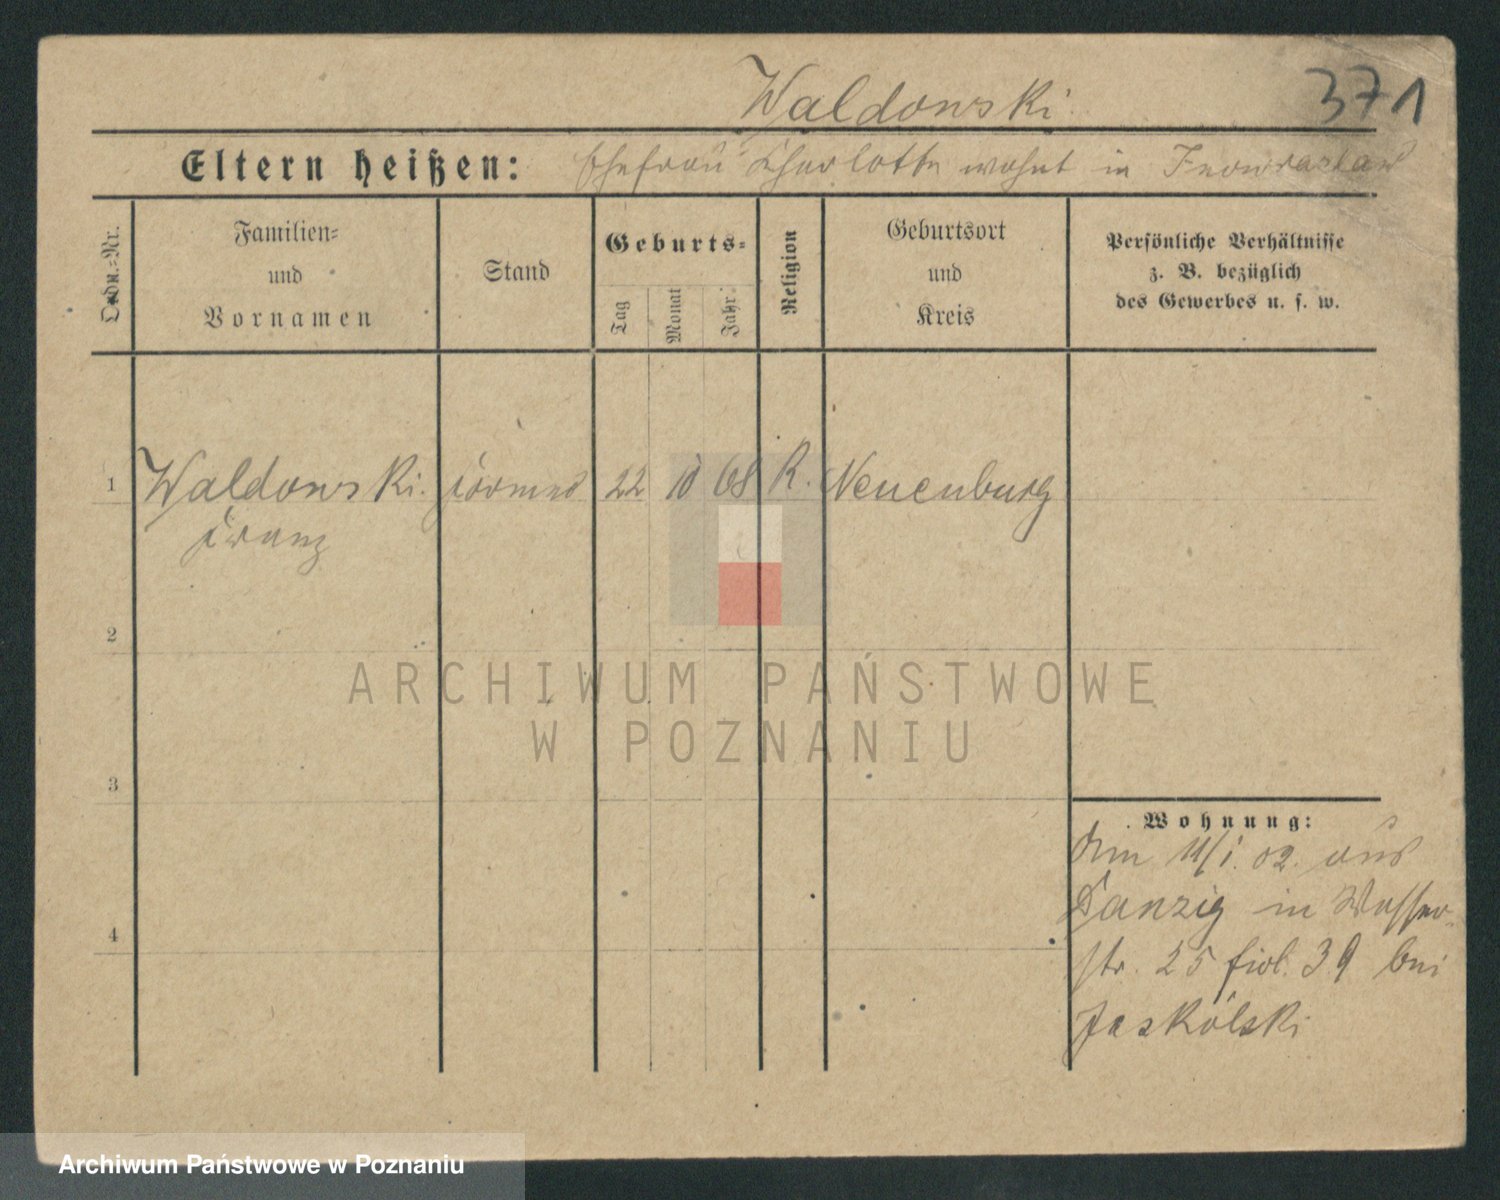 Waldowski. 371
Eltern heißen: Ehefrau Charlotte wohnt in Inowrazlaw
Ordn.-Nr.
Familien-
und
Vornamen
Stand
Geburts-
Tag
Monat
Jahr
Religion
Geburtsort
und
Kreis
Persönliche Verhältnisse
z. B. bezüglich
des Gewerbes u. s. w.
1 Waldowski. 22 10 68 R. Neuenburg
Franz
2
3
4
Wohnung:
Am 11/1. 02. aus
Danzig in Wasser-
str. 25 fiol. 39 bei
Jaskólski
ARCHIWUM PAŃSTWOWE
W POZNANIU
Archiwum Państwowe w Poznaniu